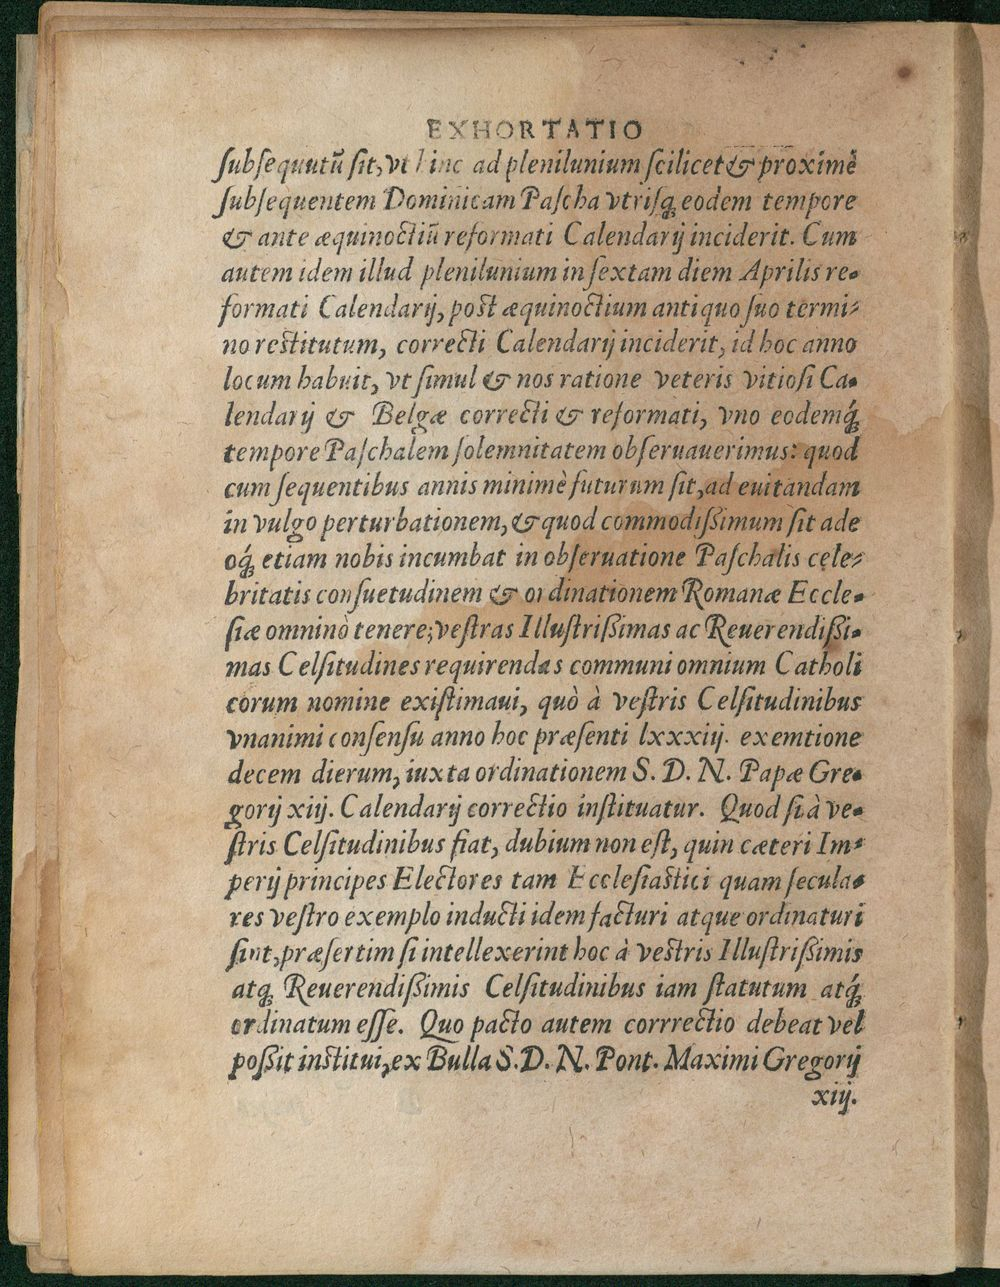 EXHORTATIO
ſubſequutū ſit, vt hinc ad plenilunium ſcilicet & proximè
ſubſequentem Dominicam Paſcha vtriſq; eodem tempore
& ante æquinoctiū reformati Calendarij inciderit. Cum
autem idem illud plenilunium in ſextam diem Aprilis re-
formati Calendarij, post æquinoctium antiquo ſuo termi-
no restitutum, correcti Calendarij inciderit, id hoc anno
locum habuit, vt ſimul & nos ratione veteris vitioſi Ca-
lendarij & Belgæ correcti & reformati, vno eodemq́;
tempore Paſchalem ſolemnitatem obſeruauerimus: quod
cum ſequentibus annis minimè futurum ſit, ad euitandam
in vulgo perturbationem, & quod commodiſſimum ſit ade
oq́; etiam nobis incumbat in obſeruatione Paſchalis cele-
britatis conſuetudinem & ordinationem Romanæ Eccle-
ſiæ omninò tenere; veſtras Illuſtriſſimas ac Reuerendiſſi-
mas Celſitudines requirendas communi omnium Catholi
corum nomine exiſtimaui, quò à veſtris Celſitudinibus
vnanimi conſenſu anno hoc præſenti lxxxiij. exemtione
decem dierum, iuxta ordinationem S. D. N. Papæ Gre-
gorij xiij. Calendarij correctio inſtituatur. Quod ſi à ve-
ſtris Celſitudinibus fiat, dubium non eſt, quin cæteri Im-
perij principes Electores tam Eccleſiastici quam ſecula-
res veſtro exemplo inducti idem facturi atque ordinaturi
ſint, præſertim ſi intellexerint hoc à vestris Illuſtriſſimis
atq; Reuerendiſſimis Celſitudinibus iam ſtatutum atq́;
ordinatum eſſe. Quo pacto autem corrrectio debeat vel
poſſit institui, ex Bulla S. D. N. Pont. Maximi Gregorij
xiij.